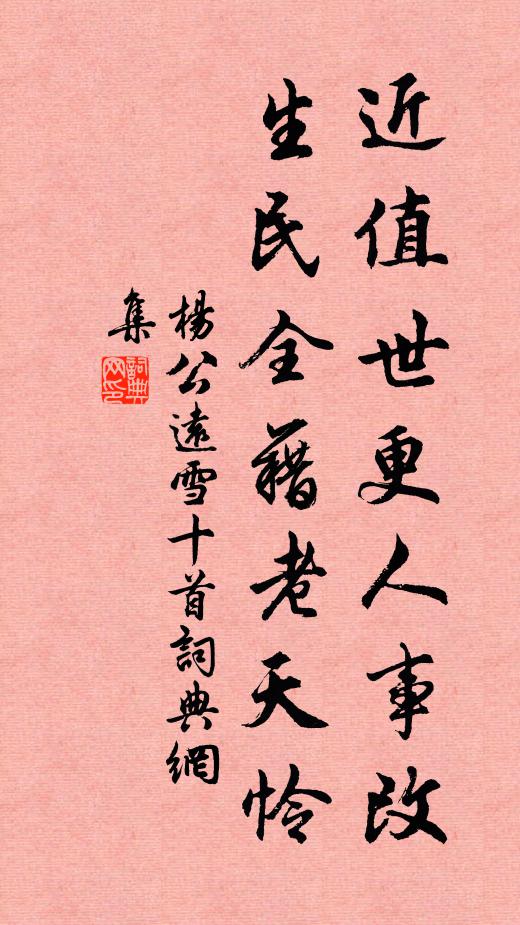 近值世更人事改
生民全藉老天怜
楊公遠雪十首詞典網
集
詞典
网印